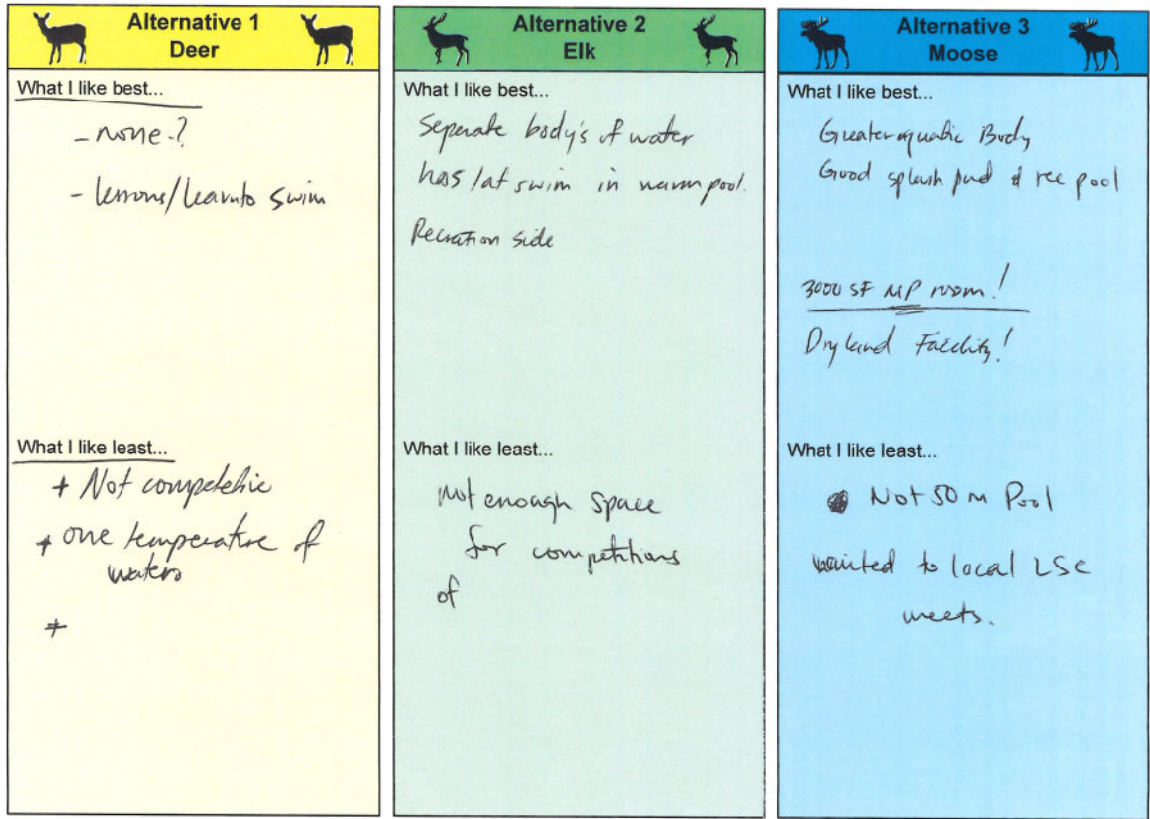 Alternative 1
Deer
What I like best...
- none-?
- lessons/learnto swim
What I like least...
+ Not competetive
+ one temperature of
waters
+
Alternative 2
Elk
What I like best...
Seperate body's of water
has lap swim in warm pool.
Recration side
What I like least...
not enough space
for competitions
of
Alternative 3
Moose
What I like best...
Greater aquatic Body
Good splash pad & rec pool
3000 SF MP room!
Dryland Facility!
What I like least...
Not 50 m Pool
to local LSC
meets.